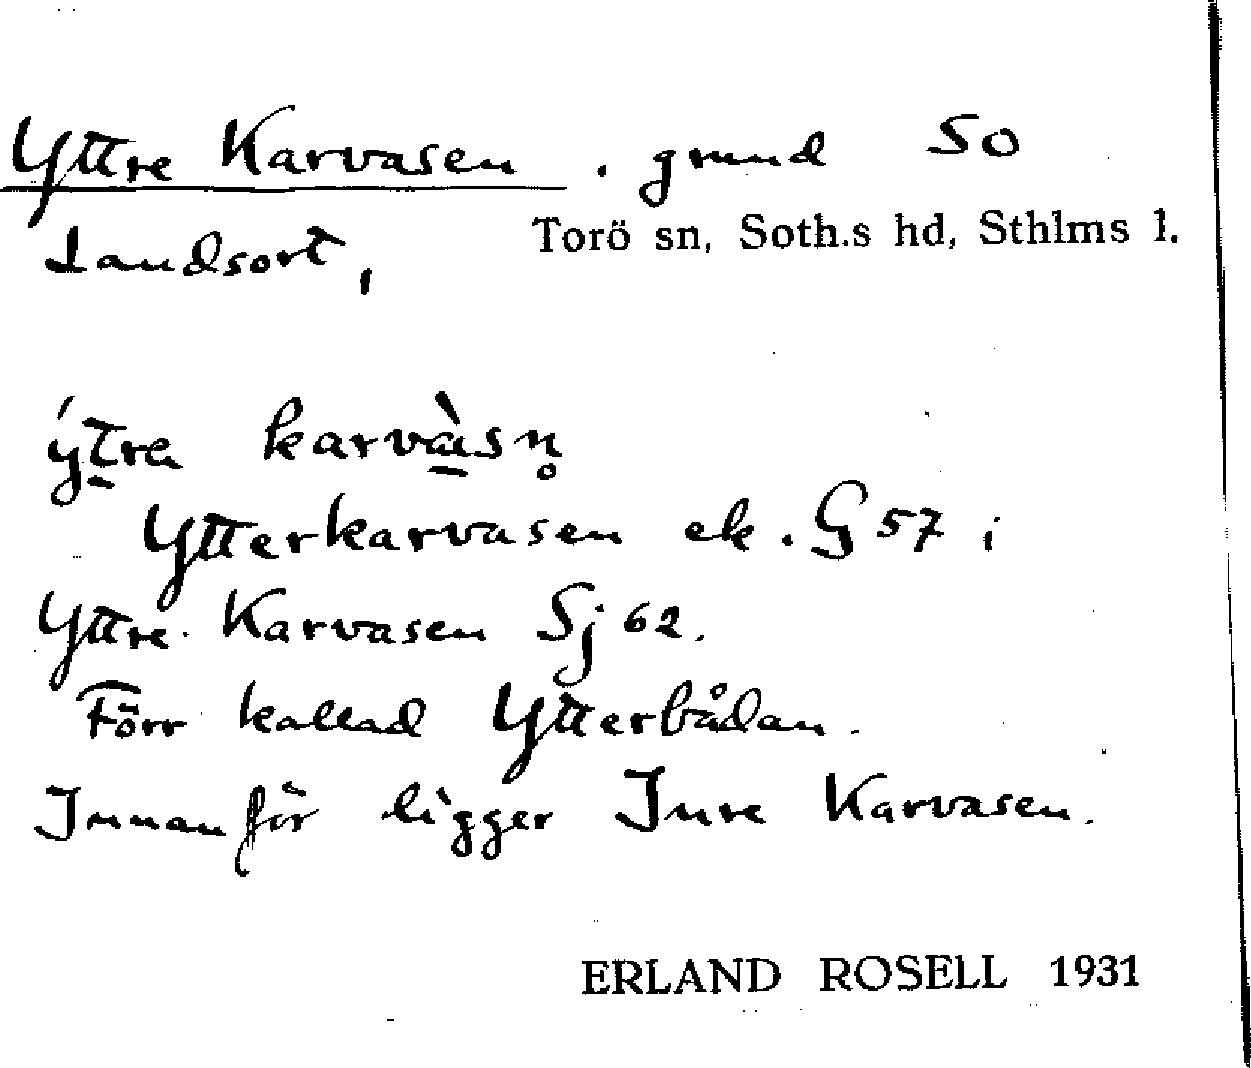 Yttre Karvasen. grund SO
Landsort,
Torö sn, Soth.s hd, Sthlms l.
ýt̠ra karvà̠sn̥
Ytterkarvasen ek. G 57 i
Yttre Karvasen Sj 62.
Förr kallad Ytterbådan.
Innanför ligger Inre Karvasen.
ERLAND ROSELL 1931